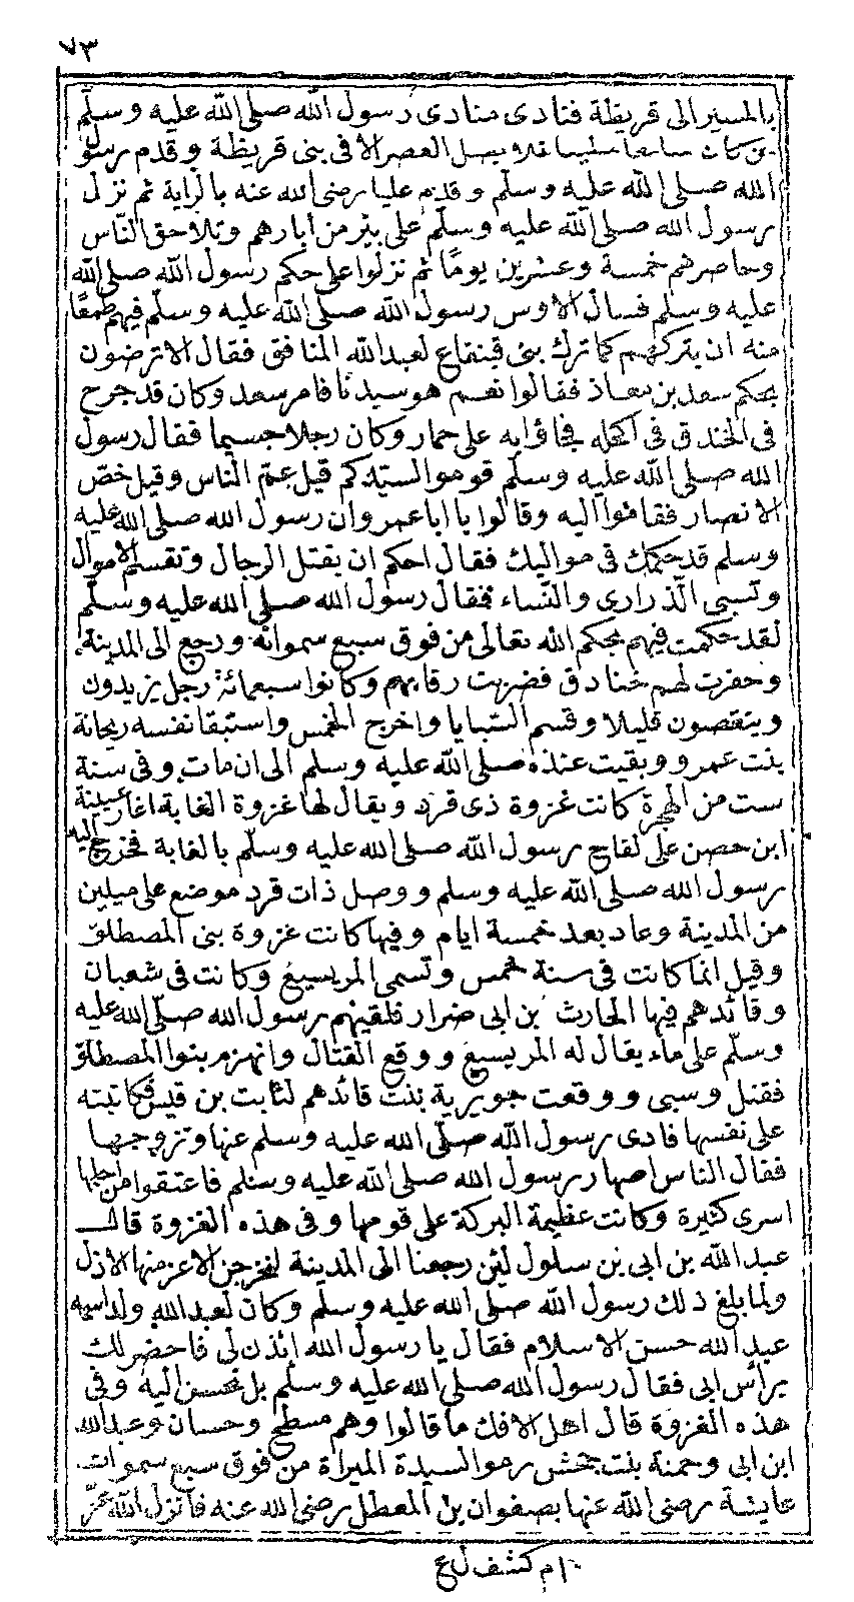 ٧٣
بالمسير الى قريظة فنادى منادى رسول الله صلى الله عليه وسلم
من كان سامعا مطيعا فلا يصل العصر الا فى بنى قريظة وقدم رسول
الله صلى الله عليه وسلم وقدم عليا رضى الله عنه بالراية ثم نزل
رسول الله صلى الله عليه وسلم على بئر من ابارهم وتلاحق الناس
وحاصرهم خمسة وعشرين يومًا ثم نزلوا على حكم رسول الله صلى الله
عليه وسلم فسال الاوس رسول الله صلى الله عليه وسلم فيهم طمعًا
منه ان يتركهم كما ترك بنى قينقاع لعبد الله المنافق فقال الا ترضون
بحكم سعد بن معاذ فقالوا نعم هو سيدنا فامر سعد وكان قد جرح
فى الخندق فى اكحله فجاؤا به على حمار وكان رجلا جسيما فقال رسول
الله صلى الله عليه وسلم قوموا لسيدكم قيل عمّ الناس وقيل خصّ
الانصار فقاموا اليه وقالوا يا ابا عمرو ان رسول الله صلى الله عليه
وسلم قد حكمك فى مواليك فقال احكم ان يقتل الرجال وتقسم الاموال
وتسبى الذرارى والنساء فقال رسول الله صلى الله عليه وسلم
لقد حكمت فيهم بحكم الله تعالى من فوق سبع سمواته ورجع الى المدينة
وحفرت لهم خنادق فضربت رقابهم وكانوا سبعمائة رجل يزيدون
وينقصون قليلا وقسم السبايا واخرج الخمس واستبقا نفسه ريحانة
بنت عمرو وبقيت عنده صلى الله عليه وسلم الى ان مات وفى سنة
ست من الهجرة كانت غزوة ذى قرد ويقال لها غزوة الغابة اغار عيينة
ابن حصن على لقاح رسول الله صلى الله عليه وسلم بالغابة فخرج اليه
رسول الله صلى الله عليه وسلم ووصل ذات قرد موضع على ميلين
من المدينة وعاد بعد خمسة ايام وفيها كانت غزوة بنى المصطلق
وقيل انما كانت فى سنة خمس وتسمى المريسيع وكانت فى شعبان
وقائدهم فيها الحارث بن ابى ضرار فلقيهم رسول الله صلى الله عليه
وسلم على ماء يقال له المريسيع ووقع القتال وانهزم بنوا المصطلق
فقتل وسبى ووقعت جويرية بنت قائدهم لثابت بن قيس فكاتبته
على نفسها فادى رسول الله صلى الله عليه وسلم عنها وتزوجها
فقال الناس اصهار رسول الله صلى الله عليه وسلم فاعتقوا من اجلها
اسرى كثيرة وكانت عظيمة البركة على قومها وفى هذه الغزوة قال
عبد الله بن ابى بن سلول لئن رجعنا الى المدينة ليخرجن الاعز منها الاذل
ولما بلغ ذلك رسول الله صلى الله عليه وسلم وكان لعبد الله ولد اسمه
عبد الله حسن الاسلام فقال يا رسول الله إئذن لى فاحضر لك
برأس ابى فقال رسول الله صلى الله عليه وسلم بل نحسن اليه وفى
هذه الغزوة قال اهل الافك ما قالوا وهم مسطح وحسان وعبد الله
ابن ابى وحمنة بنت جحش رموا السيدة المبراة من فوق سبع سموات
عايشة رضى الله عنها بصفوان بن المعطل رضى الله عنه فانزل الله عزّ
١٠ م كشف ل ع